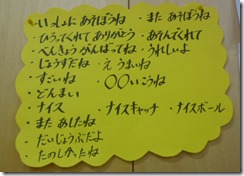 ・いっしょに あそぼうね ・また あそぼうね
・ひろってくれて ありがとう ・あそんでくれて
・べんきょう がんばってね ・うれしいよ
・じょうずだね ・え うまいね
・すごいね ・〇〇いこうね
・どんまい
・ナイス ・ナイスキャッチ ・ナイスボール
・また あしたね
・だいじょうぶだよ
・たのしかったね